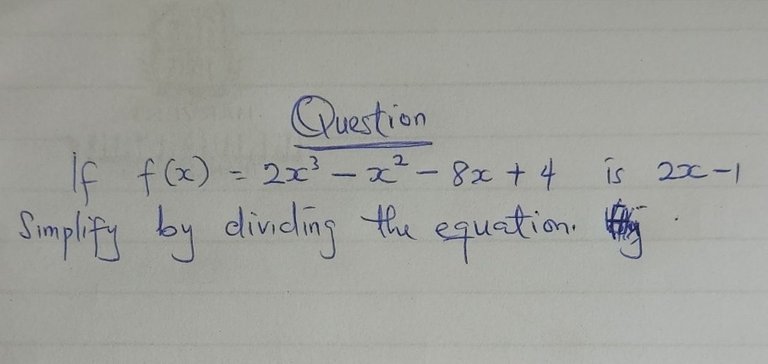 Question
If f(x) = 2x³ - x² - 8x + 4 is 2x-1
Simplify by dividing the equation.